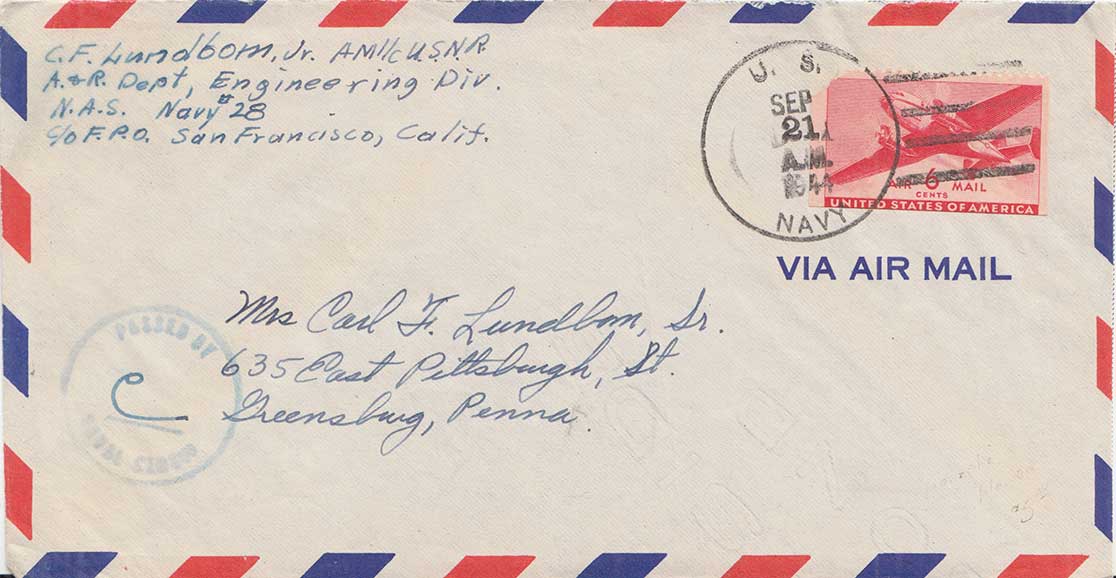 C.F. Lundbom, Jr. AM1/c U.S.N.R.
A.&R. Dept, Engineering Div.
N.A.S. Navy #28
c/o F.P.O. San Francisco, Calif.
U. S.
SEP
21
A.M.
1944
NAVY
AIR 6 MAIL
CENTS
UNITED STATES OF AMERICA
VIA AIR MAIL
Mrs Carl F. Lundbom, Sr.
635 East Pittsburgh, St.
Greensburg, Penna.
PASSED BY
NAVAL CENSOR